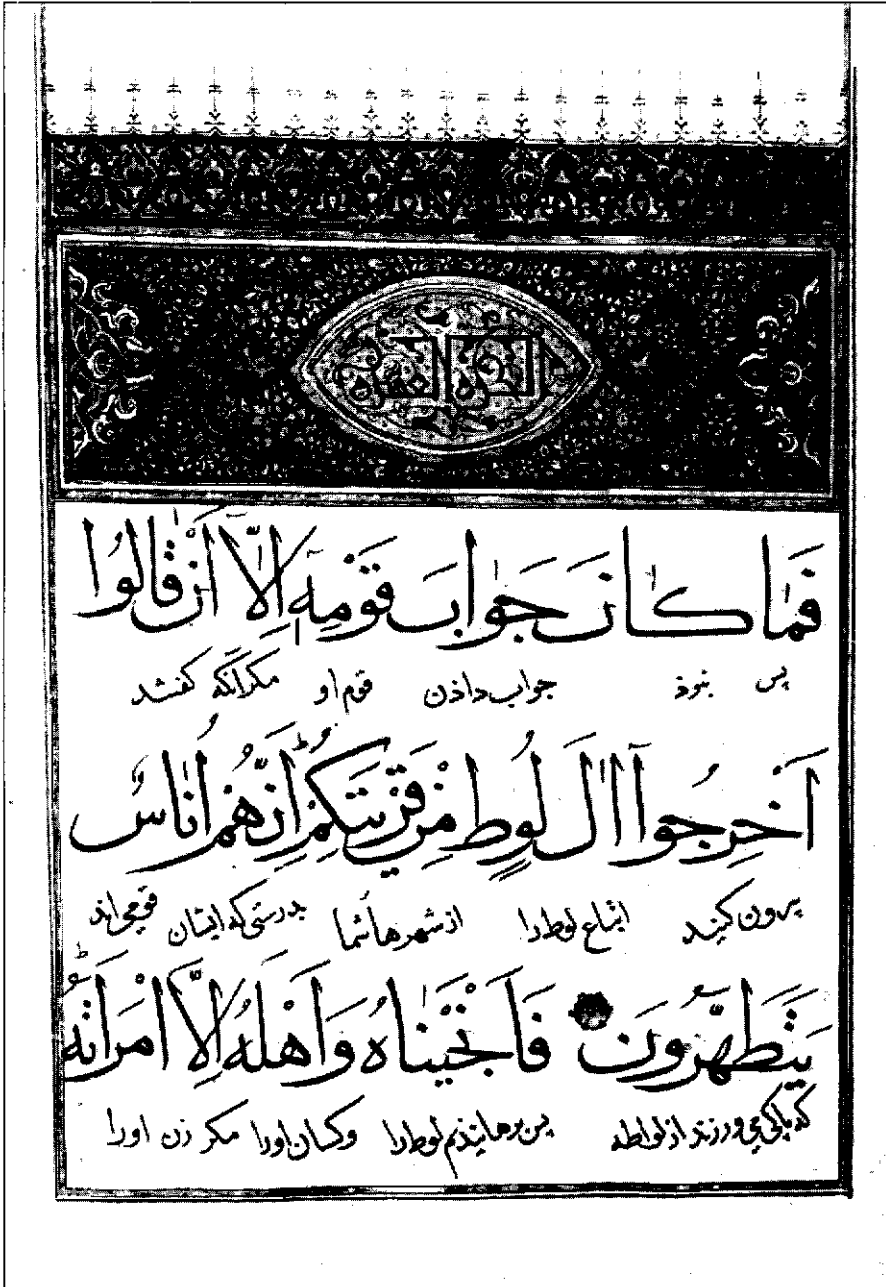 فَمَا كَانَ جَوَابَ قَوْمِهِ إِلَّا أَنْ قَالُوا
پس نبوذ جواب داذن قوم او مكر آنكه كفتند
أَخْرِجُوا آلَ لُوطٍ مِنْ قَرْيَتِكُمْ إِنَّهُمْ أُنَاسٌ
بیرون كنید اتباع لوط را از شهرهاء شما بدرستی كه ایشان قومی اند
يَتَطَهَّرُونَ فَأَنْجَيْنَاهُ وَأَهْلَهُ إِلَّا امْرَأَتَهُ
كه پاكی می ورزند از لواطه پس برهانیذیم لوط را وكسان اورا مكر زن اورا